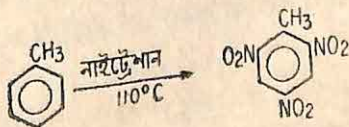 CH3
নাইট্রেশান
110°C
CH3
O2N
NO2
NO2